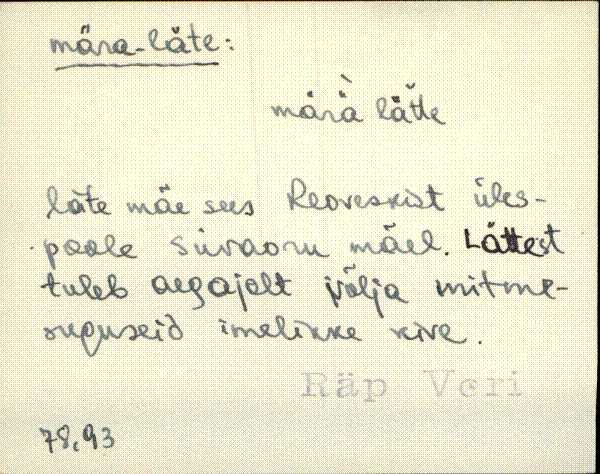 mära-läte:
märà lätte
läte mäe sees Reoveskist üles-
poole Süvaoru mäel. Lättest
tuleb aegajalt välja mitme-
suguseid imelikke kive.
Räp Veri
78,93